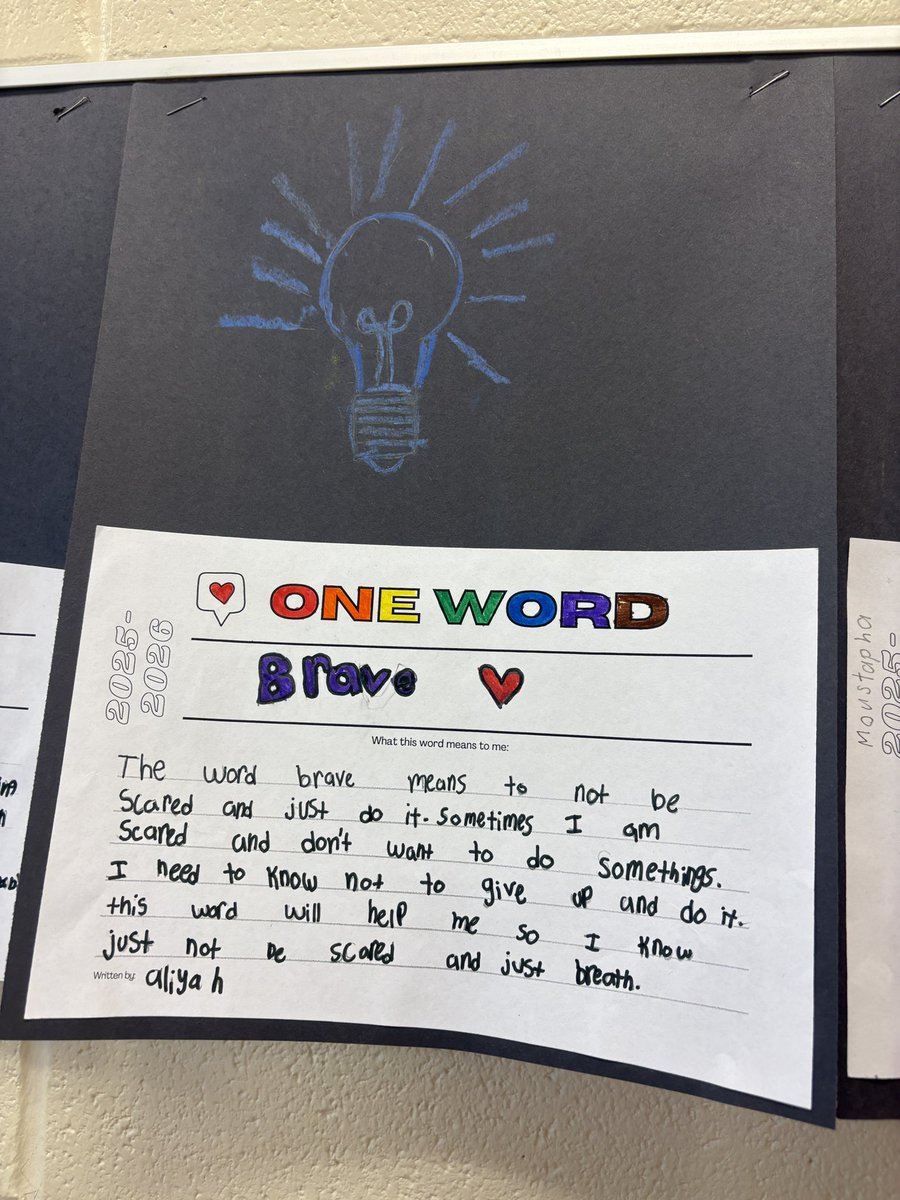 ONE WORD
2025-
2026
Brave
What this word means to me:
The word brave means to not be
Scared and just do it. Sometimes I am
Scared and don't want to do somethings.
I need to know not to give up and do it.
this word will help me so I know
just not be scared and just breath.
Written by: aliyah
Moustapha
2025-